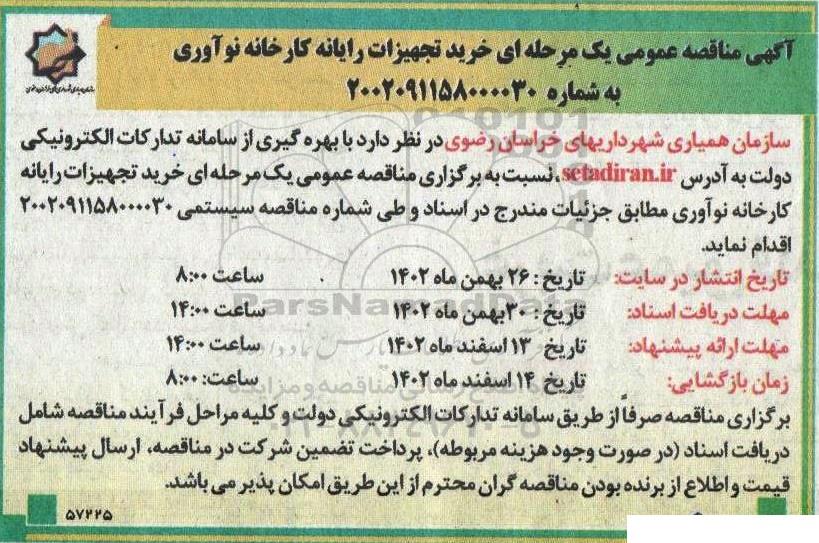 آگهی مناقصه عمومی یک مرحله ای خرید تجهیزات رایانه کارخانه نوآوری
به شماره ۲۰۰۲۰۹۱۱۵۸۰۰۰۰۳۰
سازمان همیاری شهرداریهای خراسان رضوی در نظر دارد با بهره گیری از سامانه تدارکات الکترونیکی
دولت به آدرس setadiran.ir، نسبت به برگزاری مناقصه عمومی یک مرحله ای خرید تجهیزات رایانه
کارخانه نوآوری مطابق جزئیات مندرج در اسناد و طی شماره مناقصه سیستمی ۲۰۰۲۰۹۱۱۵۸۰۰۰۰۳۰
اقدام نماید.
تاریخ انتشار در سایت: تاریخ : ۲۶ بهمن ماه ۱۴۰۲ ساعت ۸:۰۰
مهلت دریافت اسناد: تاریخ : ۳۰بهمن ماه ۱۴۰۲ ساعت ۱۴:۰۰
مهلت ارائه پیشنهاد: تاریخ ۱۳ اسفند ماه ۱۴۰۲ ساعت ۱۴:۰۰
زمان بازگشایی: تاریخ ۱۴ اسفند ماه ۱۴۰۲ ساعت: ۸:۰۰
برگزاری مناقصه صرفاً از طریق سامانه تدارکات الکترونیکی دولت و کلیه مراحل فرآیند مناقصه شامل
دریافت اسناد (در صورت وجود هزینه مربوطه)، پرداخت تضمین شرکت در مناقصه، ارسال پیشنهاد
قیمت و اطلاع از برنده بودن مناقصه گران محترم از این طریق امکان پذیر می باشد.
۵۷۲۲۵
ParsNamadData